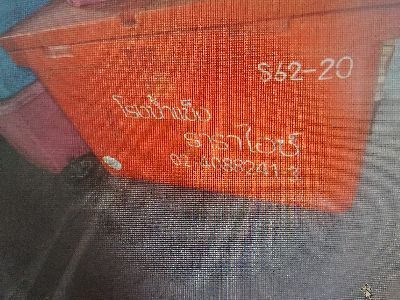 S62-20
โรงน้ำแข็ง
ธาราไอซ์
02-4088241-2